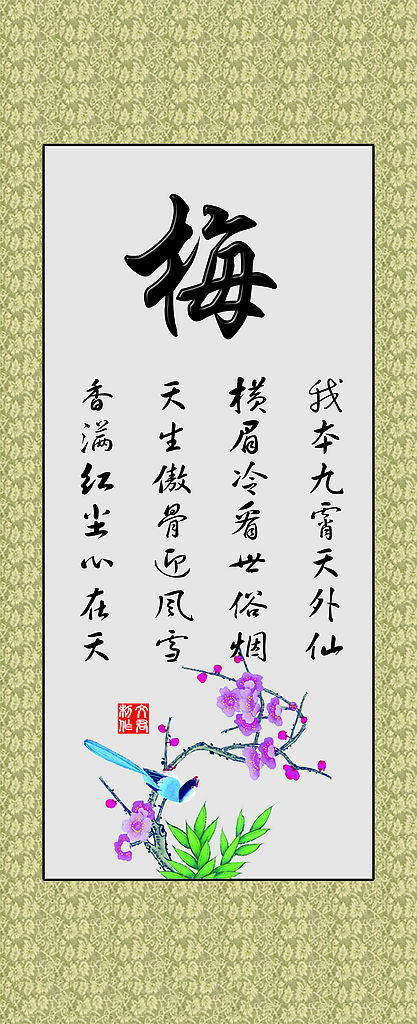 梅
我本九霄天外仙
横眉冷看世俗烟
天生傲骨迎风雪
香满红尘心在天
文君
制作